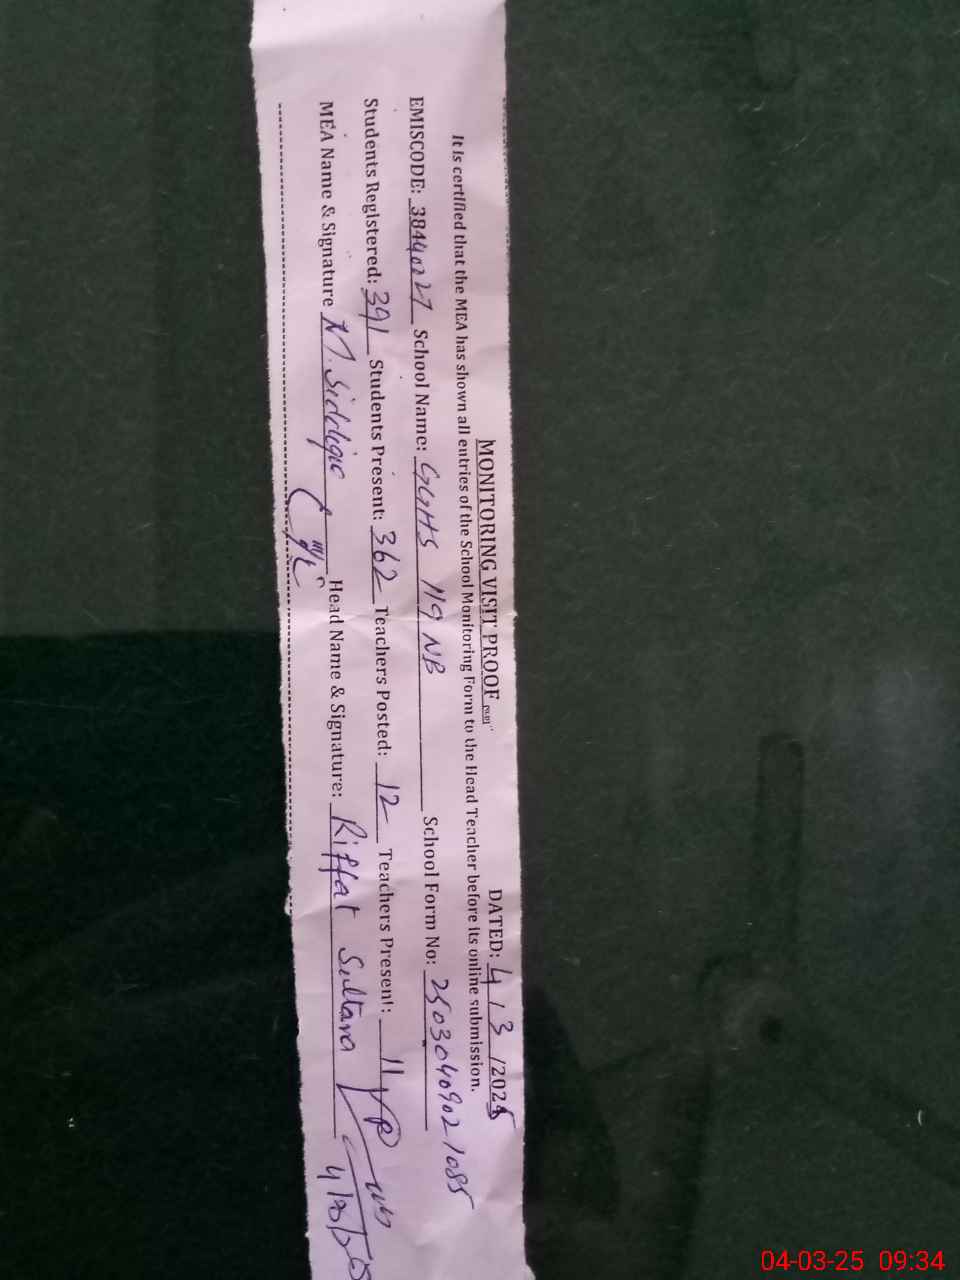 MONITORING VISIT PROOF
DATED: 4 / 3 /2025
It is certified that the MEA has shown all entries of the School Monitoring Form to the Head Teacher before its online submission.
EMISCODE: 38440227 School Name: GGHS 119 NB School Form No: 25030409021085
Students Registered: 391 Students Present: 362 Teachers Posted: 12 Teachers Present: 11
MEA Name & Signature M. Siddique Head Name & Signature: Riffat Sultana
04-03-25 09:34